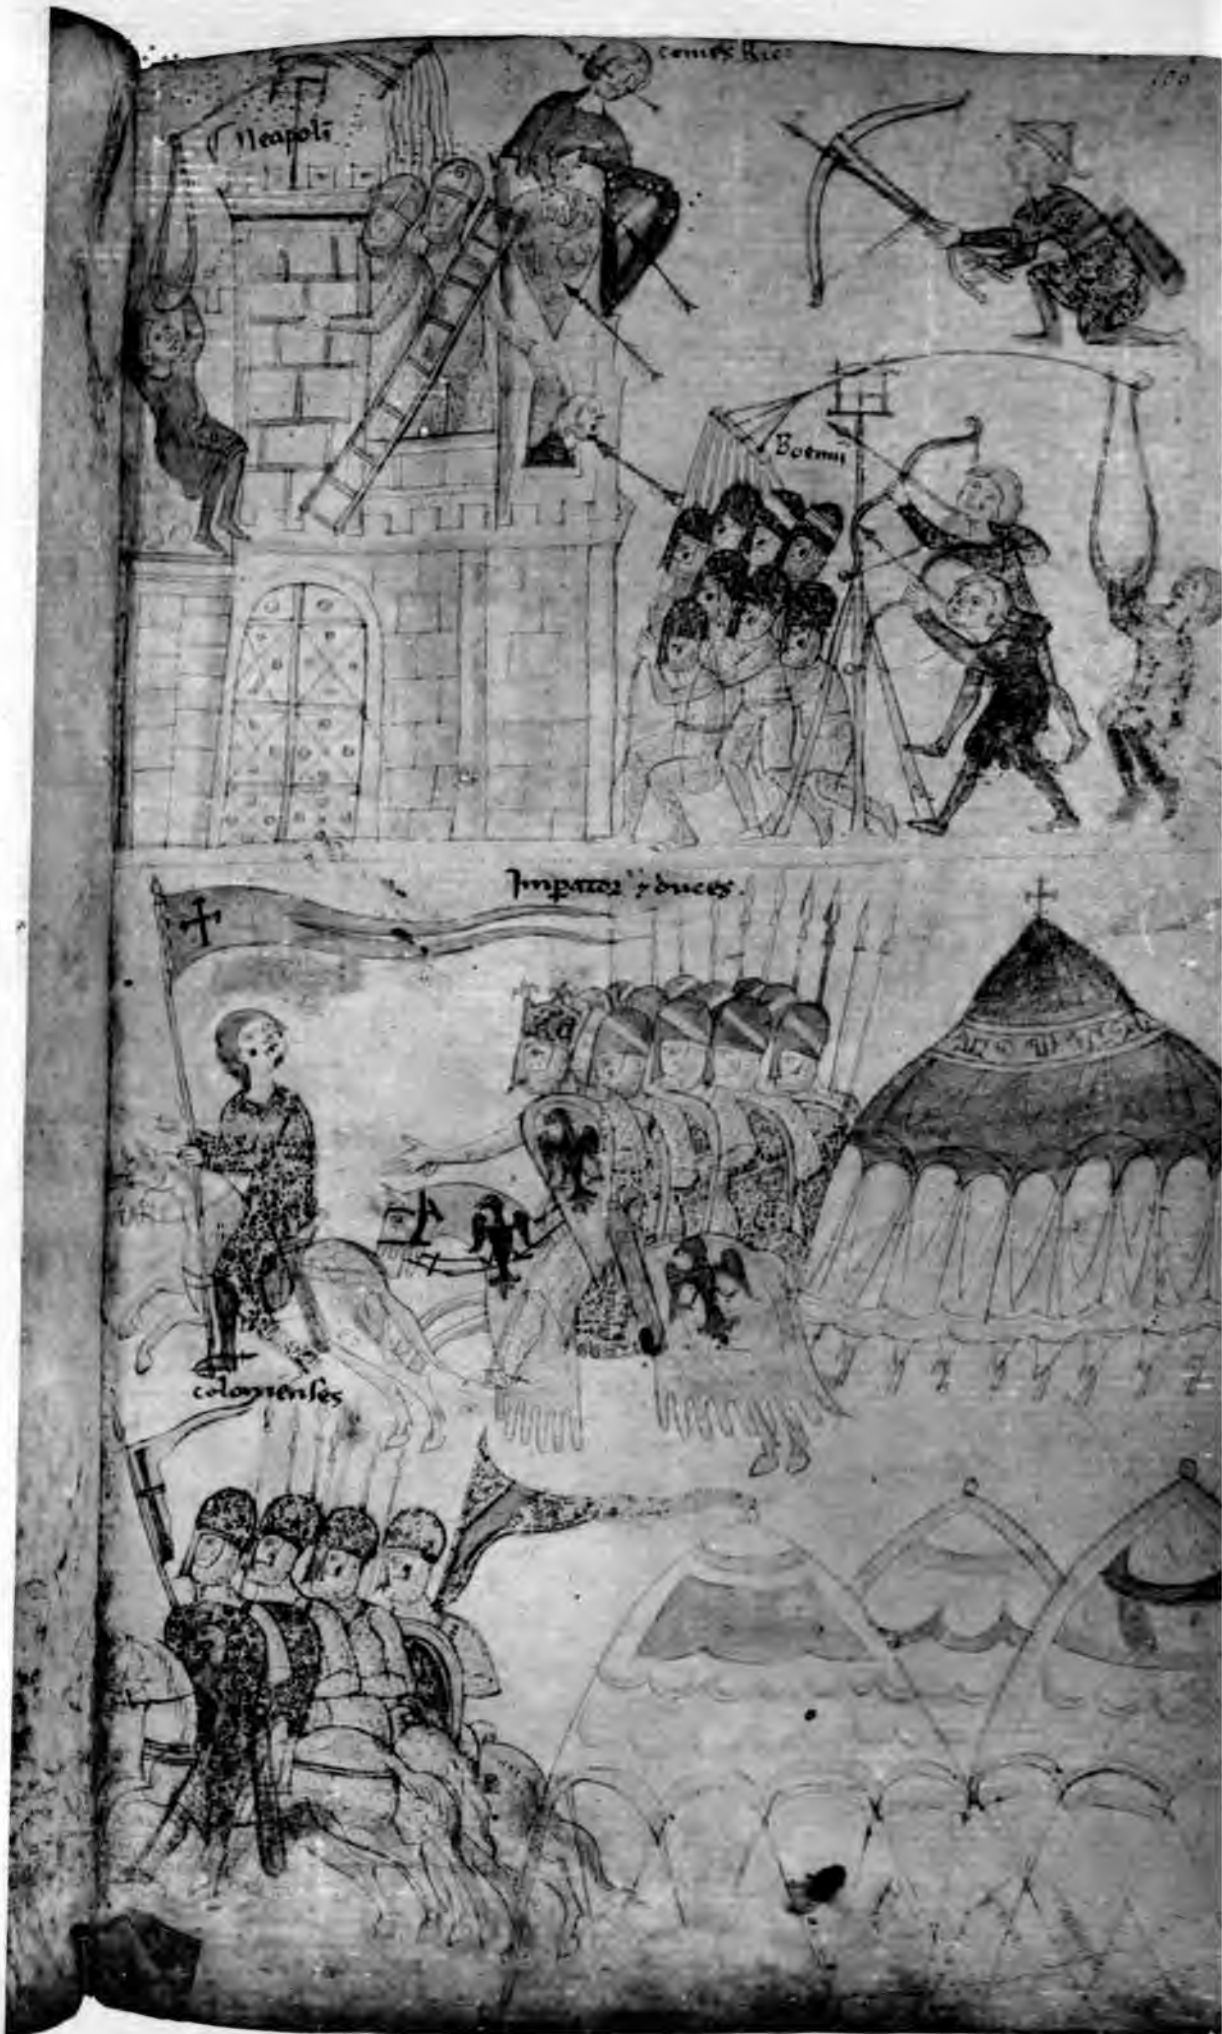 comes Ric
Neapoli
Boemii
Imperator & duces.
colonienses